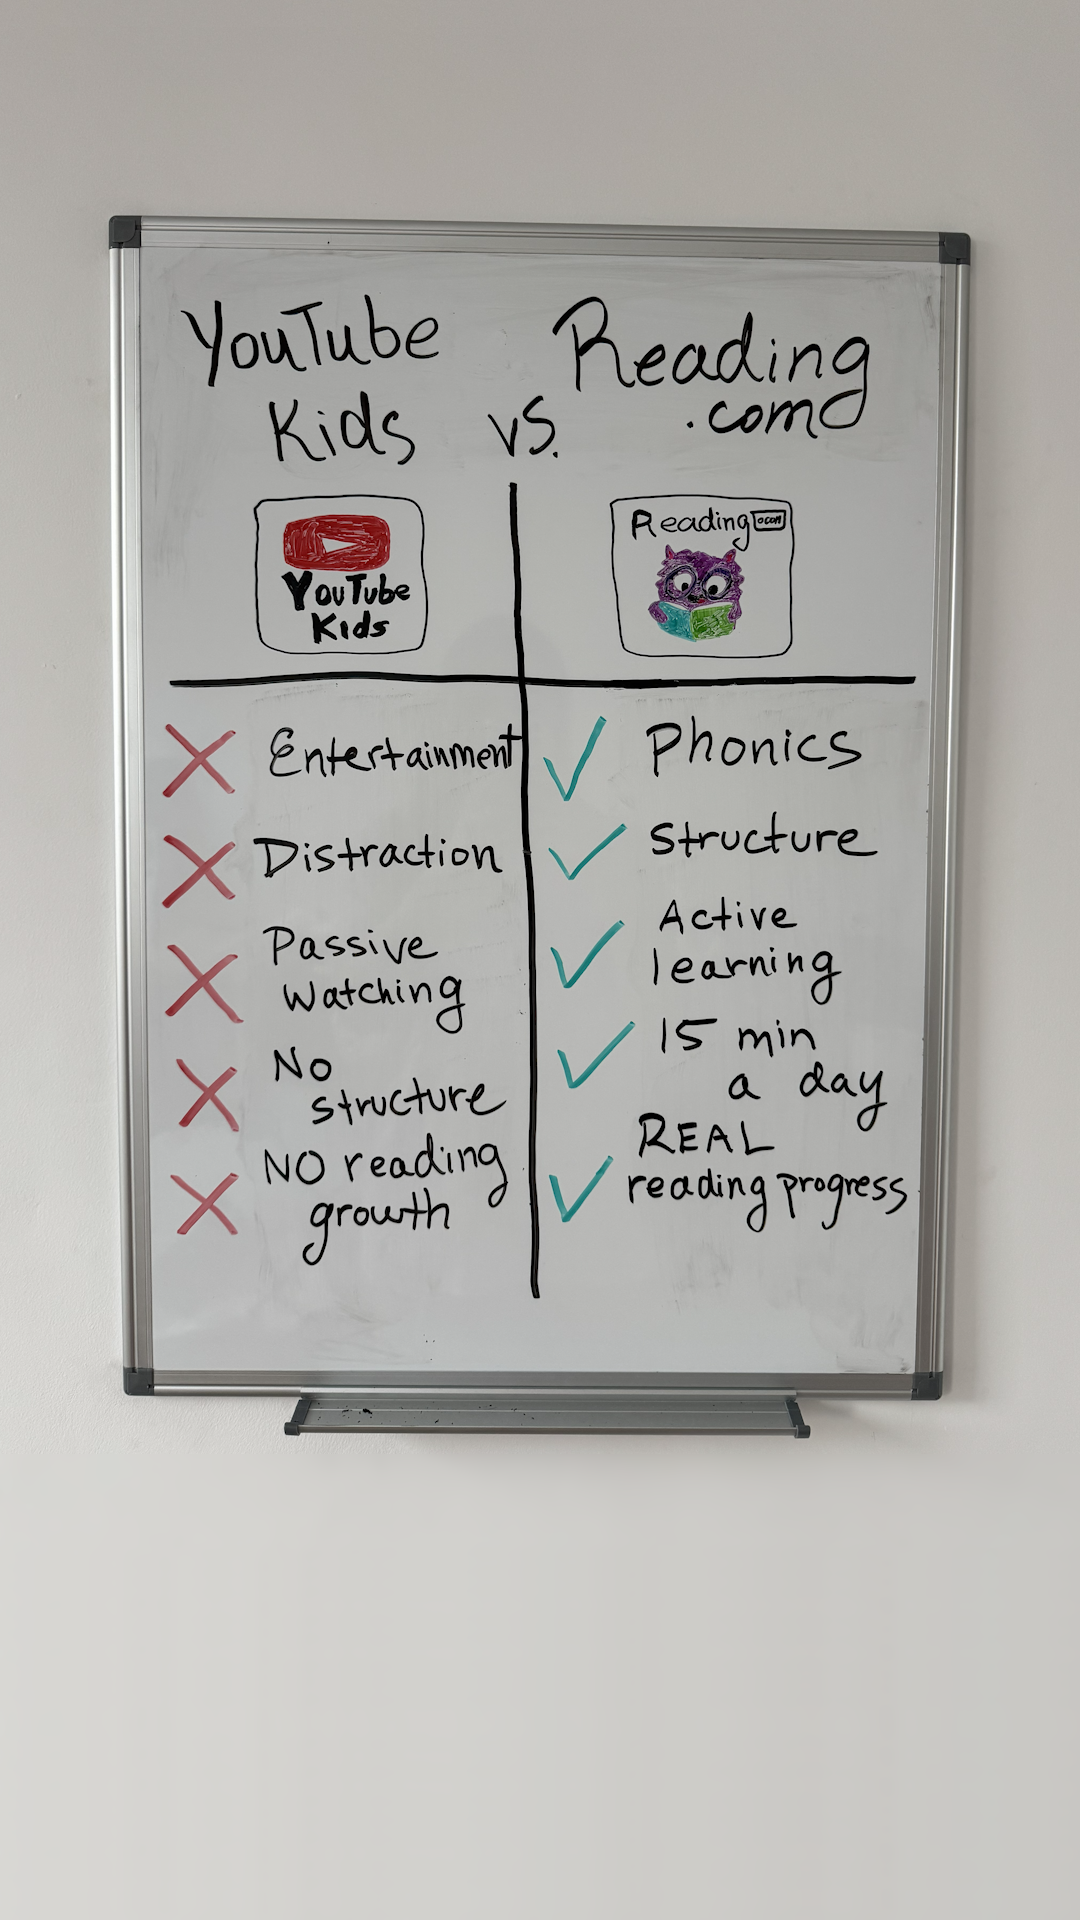 YouTube
Kids
vs.
Reading
.com
YouTube
Kids
Reading .com
Entertainment
Distraction
Passive
watching
No
structure
NO reading
growth
Phonics
Structure
Active
learning
15 min
a day
REAL
reading progress